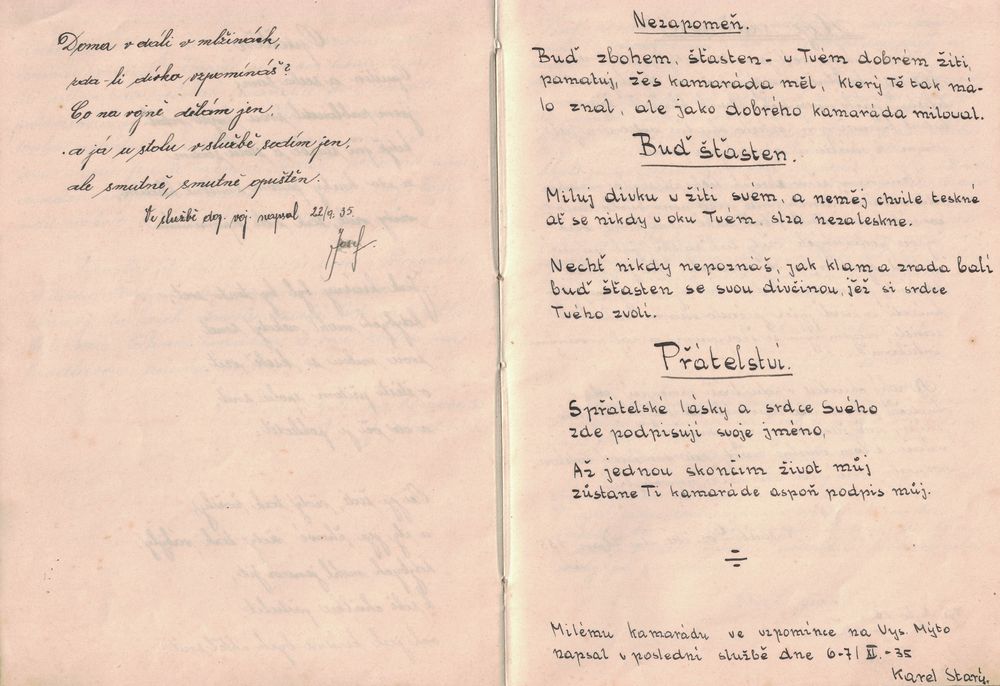 Doma v dáli v mlžinách,
zda-li dívko vzpomínáš?
Co na vojně dělám jen,
a já u stolu v službě sedím jen,
ale smutně, smutně opuštěn.
Ve službě doz. voj. napsal 22/9. 35.
Josef.
Nezapomeň.
Buď zbohem, šťasten - u Tvém dobrém žití,
pamatuj, žes kamaráda měl, který Tě tak má-
lo znal, ale jako dobrého kamaráda miloval.
Buď šťasten.
Miluj dívku v žití svém, a neměj chvíle teskné
ať se nikdy v oku Tvém, slza nezaleskne.
Nechť nikdy nepoznáš, jak klam a zrada bolí
buď šťasten se svou dívčinou, jěž si srdce
Tvého zvolí.
Přátelství.
Spřátelské lásky a srdce Svého
zde podpisují svoje jméno,
Až jednou skončím život můj
zůstane Ti kamaráde aspoň podpis můj.
Milému kamarádu ve vzpomínce na Vys. Mýto
napsal v poslední službě dne 6-7/ -35
Karel Starý.